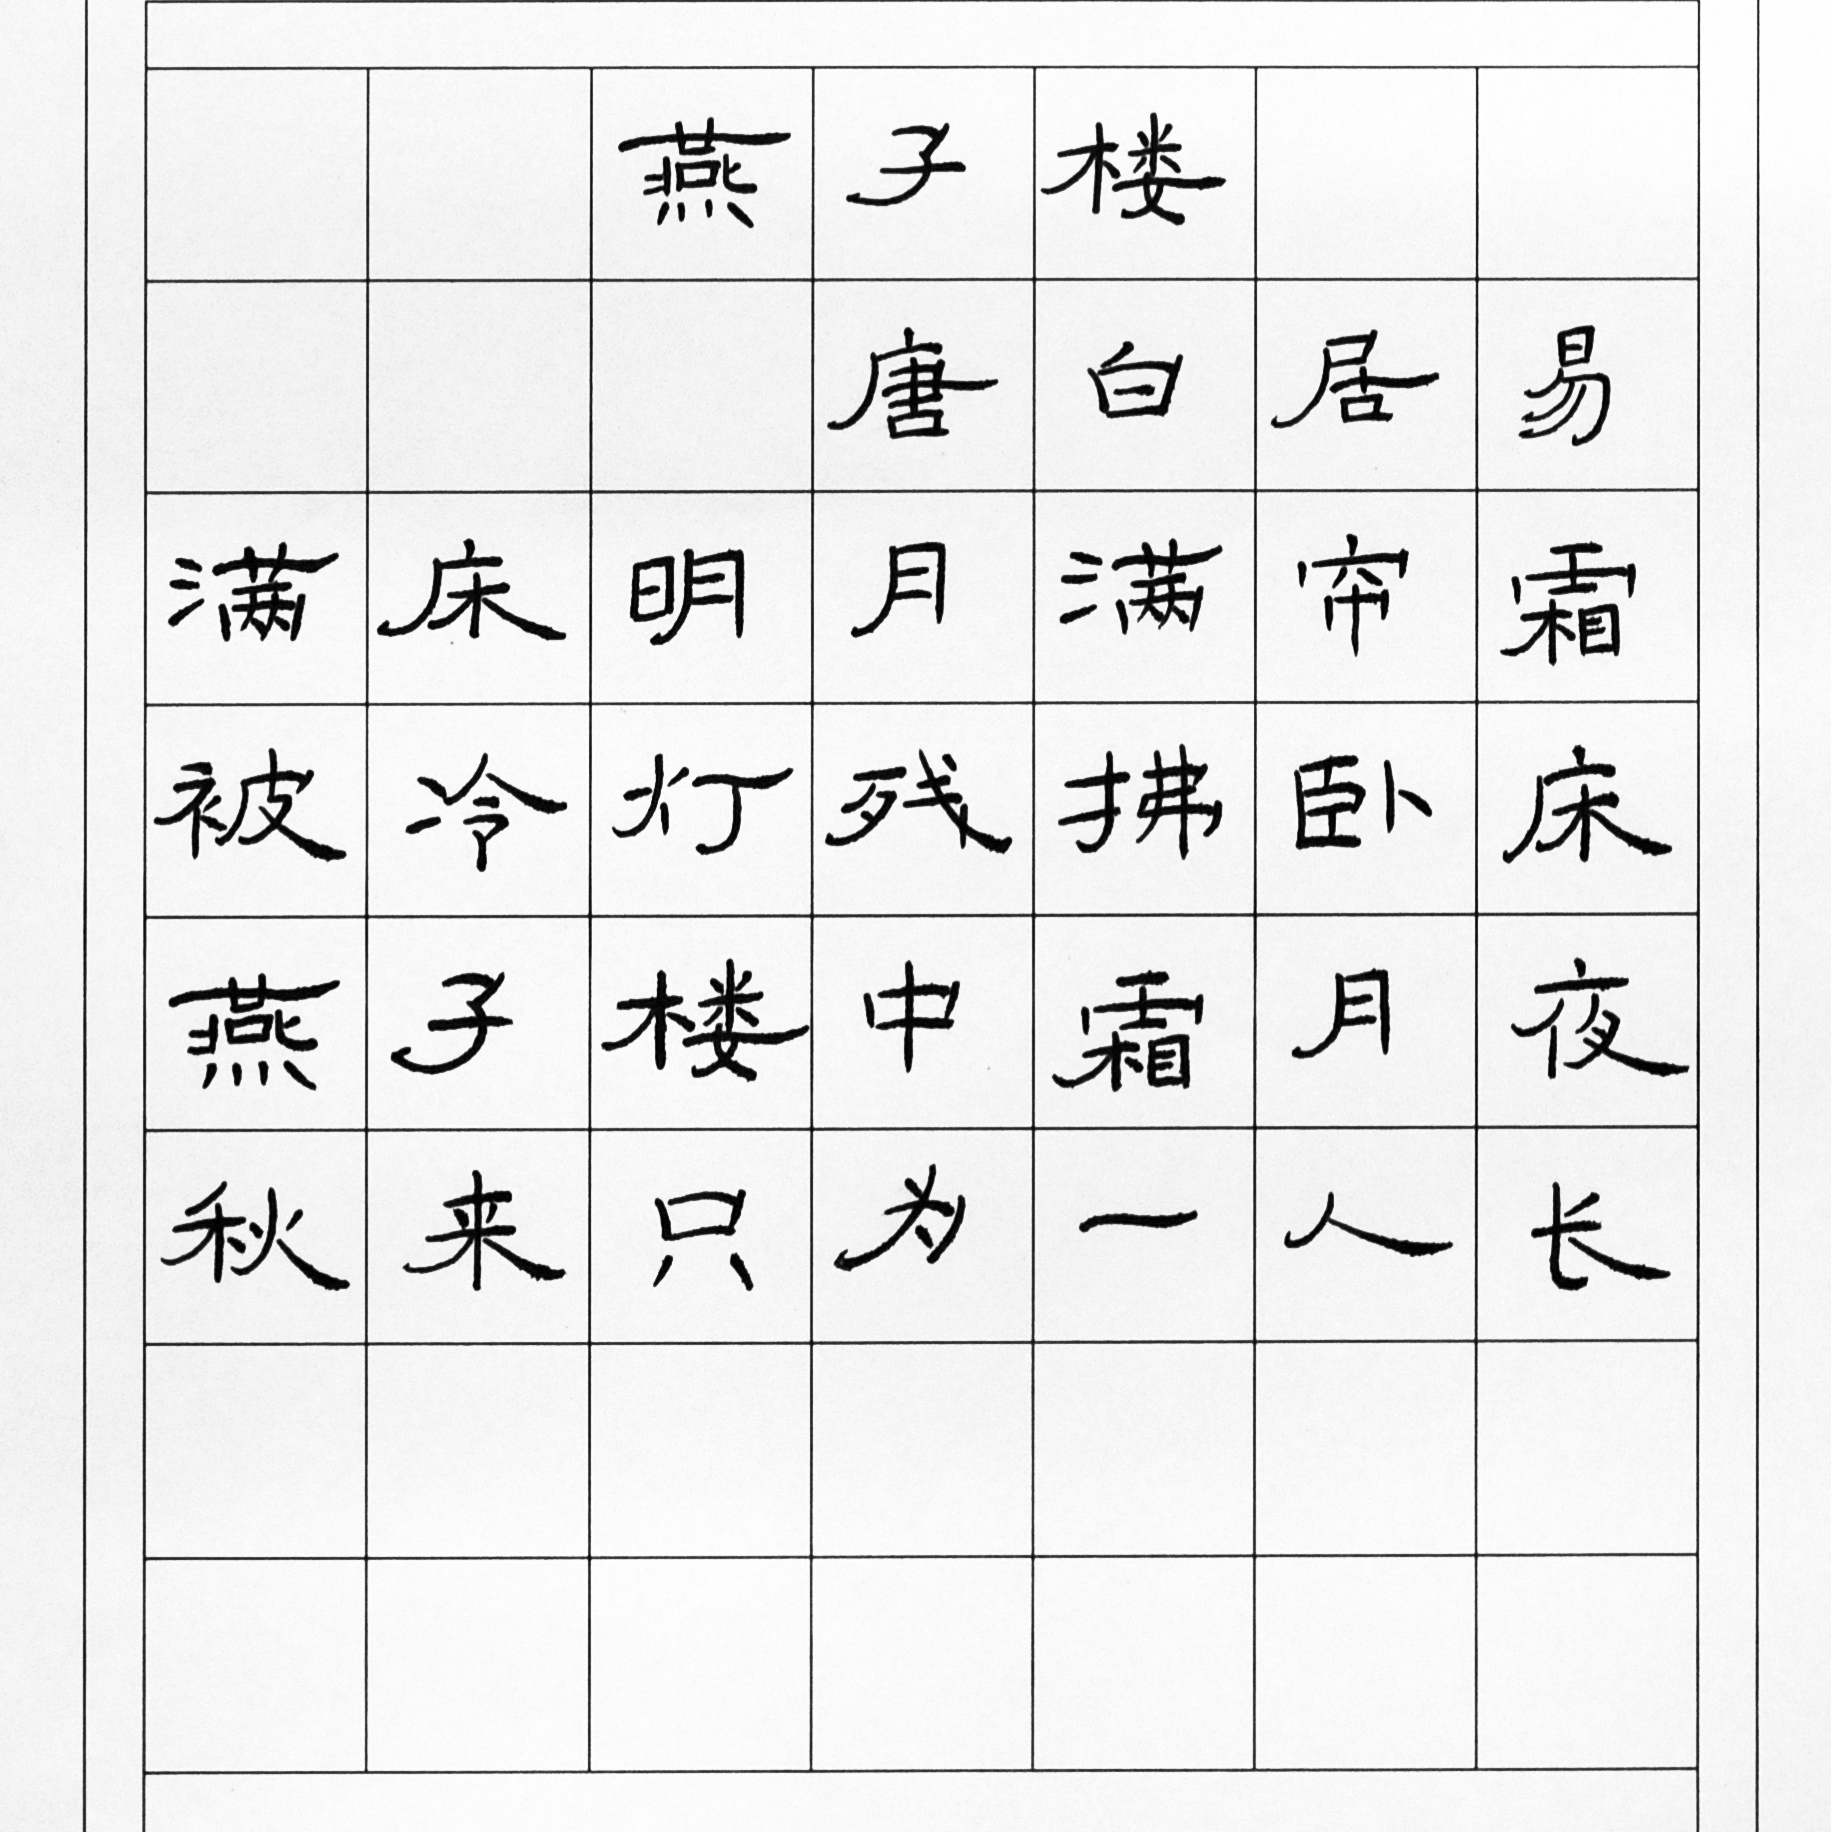 燕子楼
唐白居易
满床明月满帘霜
被冷灯残拂卧床
燕子楼中霜月夜
秋来只为一人长